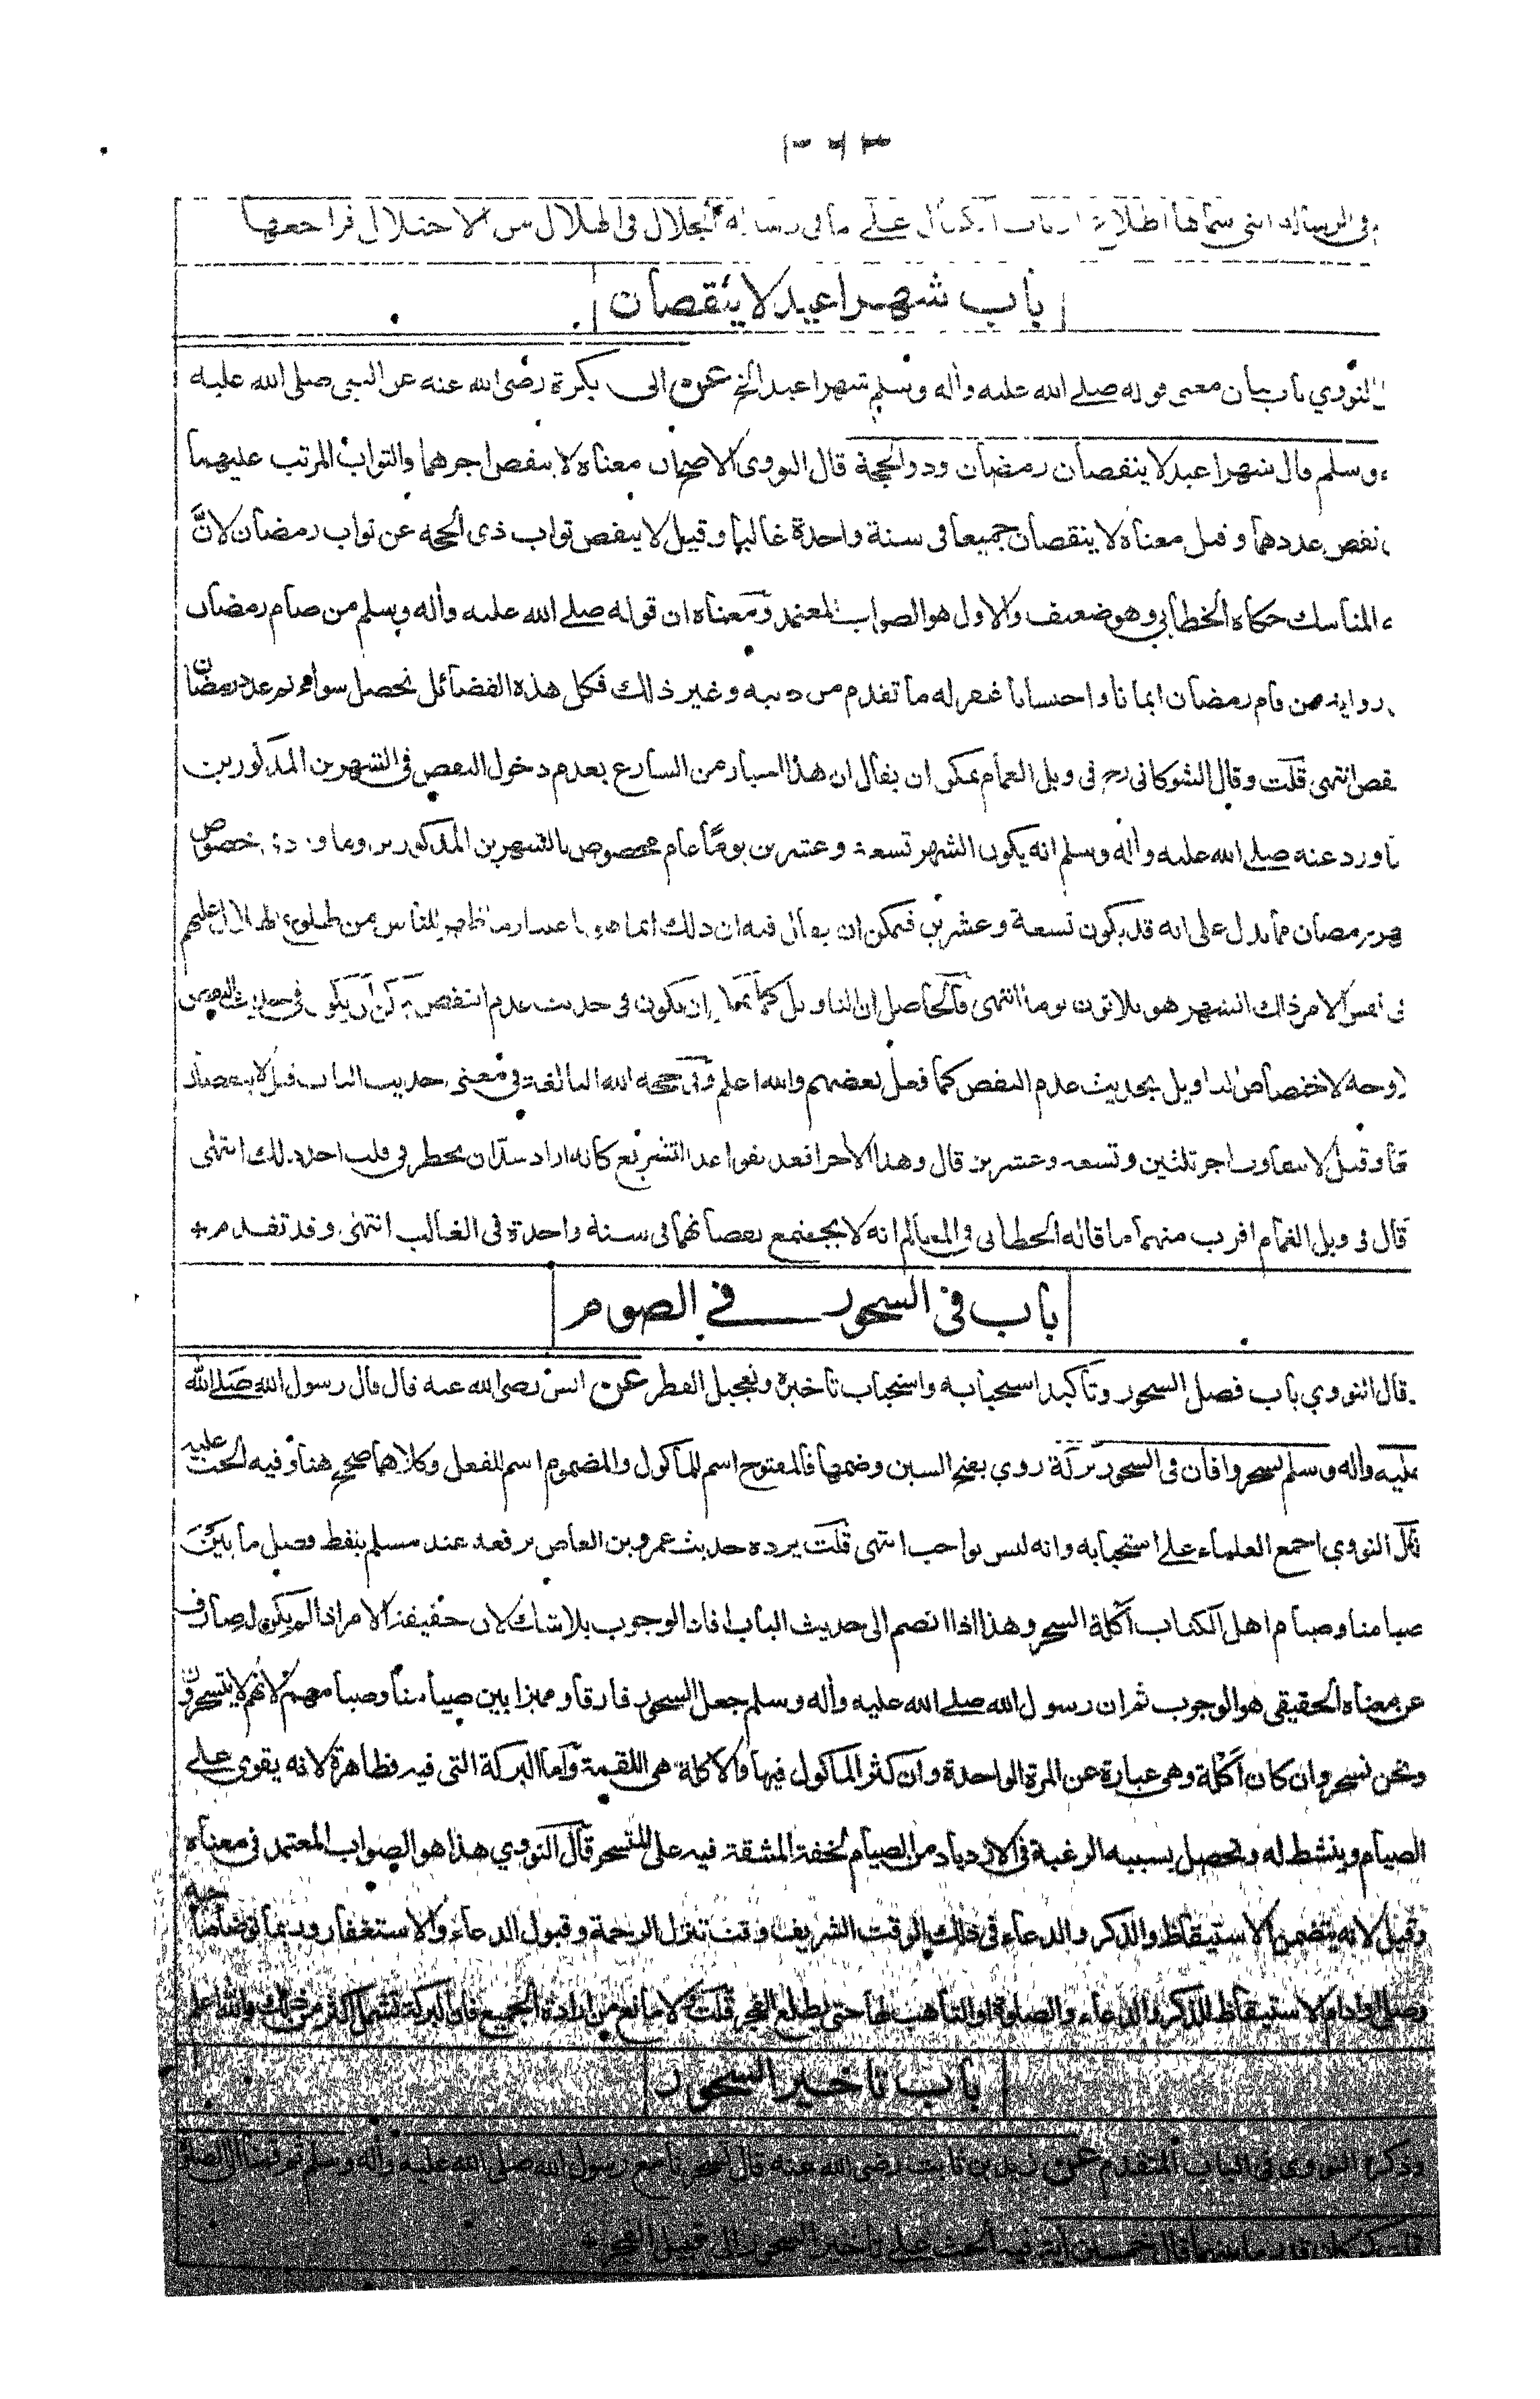 في الرسالة التي سماها اطلاع ارباب الكمال على ما في رسالة الجلال في الهلال من الاختلال فراجعها
باب شهرا عيد لا ينقصان
النووي باب بيان معنى قوله صلى الله عليه واله وسلم شهرا عيد الخ عن ابي بكرة رضي الله عنه عن النبي صلى الله عليه
وسلم قال شهرا عيد لا ينقصان رمضان وذو الحجة قال النووي الاصح ان معناه لا ينقص اجرهما والثواب المرتب عليهما
نقص عددهما وقيل معناه لا ينقصان جميعا في سنة واحدة غالبا وقيل لا ينقص ثواب ذي الحجة عن ثواب رمضان لان
المناسك حكاه الخطابي وهو ضعيف والاول هو الصواب المعتمد ومعناه ان قوله صلى الله عليه واله وسلم من صام رمضان
رواية من قام رمضان ايمانا واحتسابا غفر له ما تقدم من ذنبه وغير ذلك فكل هذه الفضائل تحصل سواء تم عدد رمضان
نقص انتهى قلت وقال الشوكاني رح في وبل الغمام يمكن ان يقال ان هذا اخبار من الشارع بعدم دخول النقص في الشهرين المذكورين
ما ورد عنه صلى الله عليه واله وسلم انه يكون الشهر تسعة وعشرين يوما عام مخصوص بالشهرين المذكورين وما ورد خصوص
رمضان مما يدل على انه قد يكون تسعة وعشرين فيمكن ان يقال فيه ان ذلك انما هو باعتبار ما ظهر للناس من طلوع الهلال عليهم
في نفس الامر ذلك الشهر هو ثلاثون يوما انتهى فالحاصل ان التاويل كما ان يكون في حديث عدم النقص يمكن ان يكون في حديث النقص
وجه لاختصاص التاويل بحديث عدم النقص كما فعل بعضهم والله اعلم وفي حجة الله البالغة في معنى حديث الباب قيل لا ينقصان
معا وقيل لا يتفاوت اجر ثلثين وتسعة وعشرين قال وهذا الاخر اقعد بقواعد التشريع كانه اراد سد ان يخطر في قلب احد ذلك انتهى
قال في وبل الغمام اقرب منهما ما قاله الخطابي في المعالم انه لا يجتمع نقصانهما في سنة واحدة في الغالب انتهى وقد تقدم +
باب في السحور في الصوم
قال النووي باب فضل السحور وتاكيد استحبابه واستحباب تاخيره وتعجيل الفطر عن انس رضي الله عنه قال قال رسول الله صلى الله
عليه واله وسلم تسحروا فان في السحور بركة روي بفتح السين وضمها فالمفتوح اسم للماكول والمضموم اسم للفعل وكلاهما صحيح هنا وفيه الحث عليه
قال النووي اجمع العلماء على استحبابه وانه ليس بواجب انتهى قلت يرده حديث عمرو بن العاص يرفعه عند مسلم بلفظ فصل ما بين
صيامنا وصيام اهل الكتاب اكلة السحر وهذا اذا انضم الى حديث الباب افاد الوجوب بلا شك لان حقيقة الامر اذا لم يكن له صارف
عن معناه الحقيقي هو الوجوب ثم ان رسول الله صلى الله عليه واله وسلم جعل السحور فارقا ومميزا بين صيامنا وصيامهم لانهم لا يتسحرون
ونحن نسحر وان كان اكلة وهي عبارة عن المرة الواحدة وان كثر الماكول فيها والاكلة هي اللقمة واما البركة التي فيه فظاهرة لانه يقوى على
الصيام وينشط له وتحصل بسببه الرغبة في الازدياد من الصيام لخفة المشقة فيه على المتسحر قال النووي هذا هو الصواب المعتمد في معناه
وقيل لانه يتضمن الاستيقاظ والذكر والدعاء في ذلك الوقت الشريف وقت تنزل الرحمة وقبول الدعاء والاستغفار وربما توضا صاحبه
وصلى او ادام الاستيقاظ للذكر والدعاء والصلوة او التاهب لها حتى يطلع الفجر قلت لا مانع من ارادة الجميع فان البركة تشمل اكثر من ذلك والله اعلم
باب تاخير السحور
وذكره النووي في الباب المتقدم عن زيد بن ثابت رضي الله عنه قال تسحرنا مع رسول الله صلى الله عليه واله وسلم ثم قمنا الى الصلوة
قلت كم كان قدر ما بينهما قال خمسين اية فيه الحث على تاخير السحور الى قبيل الفجر +